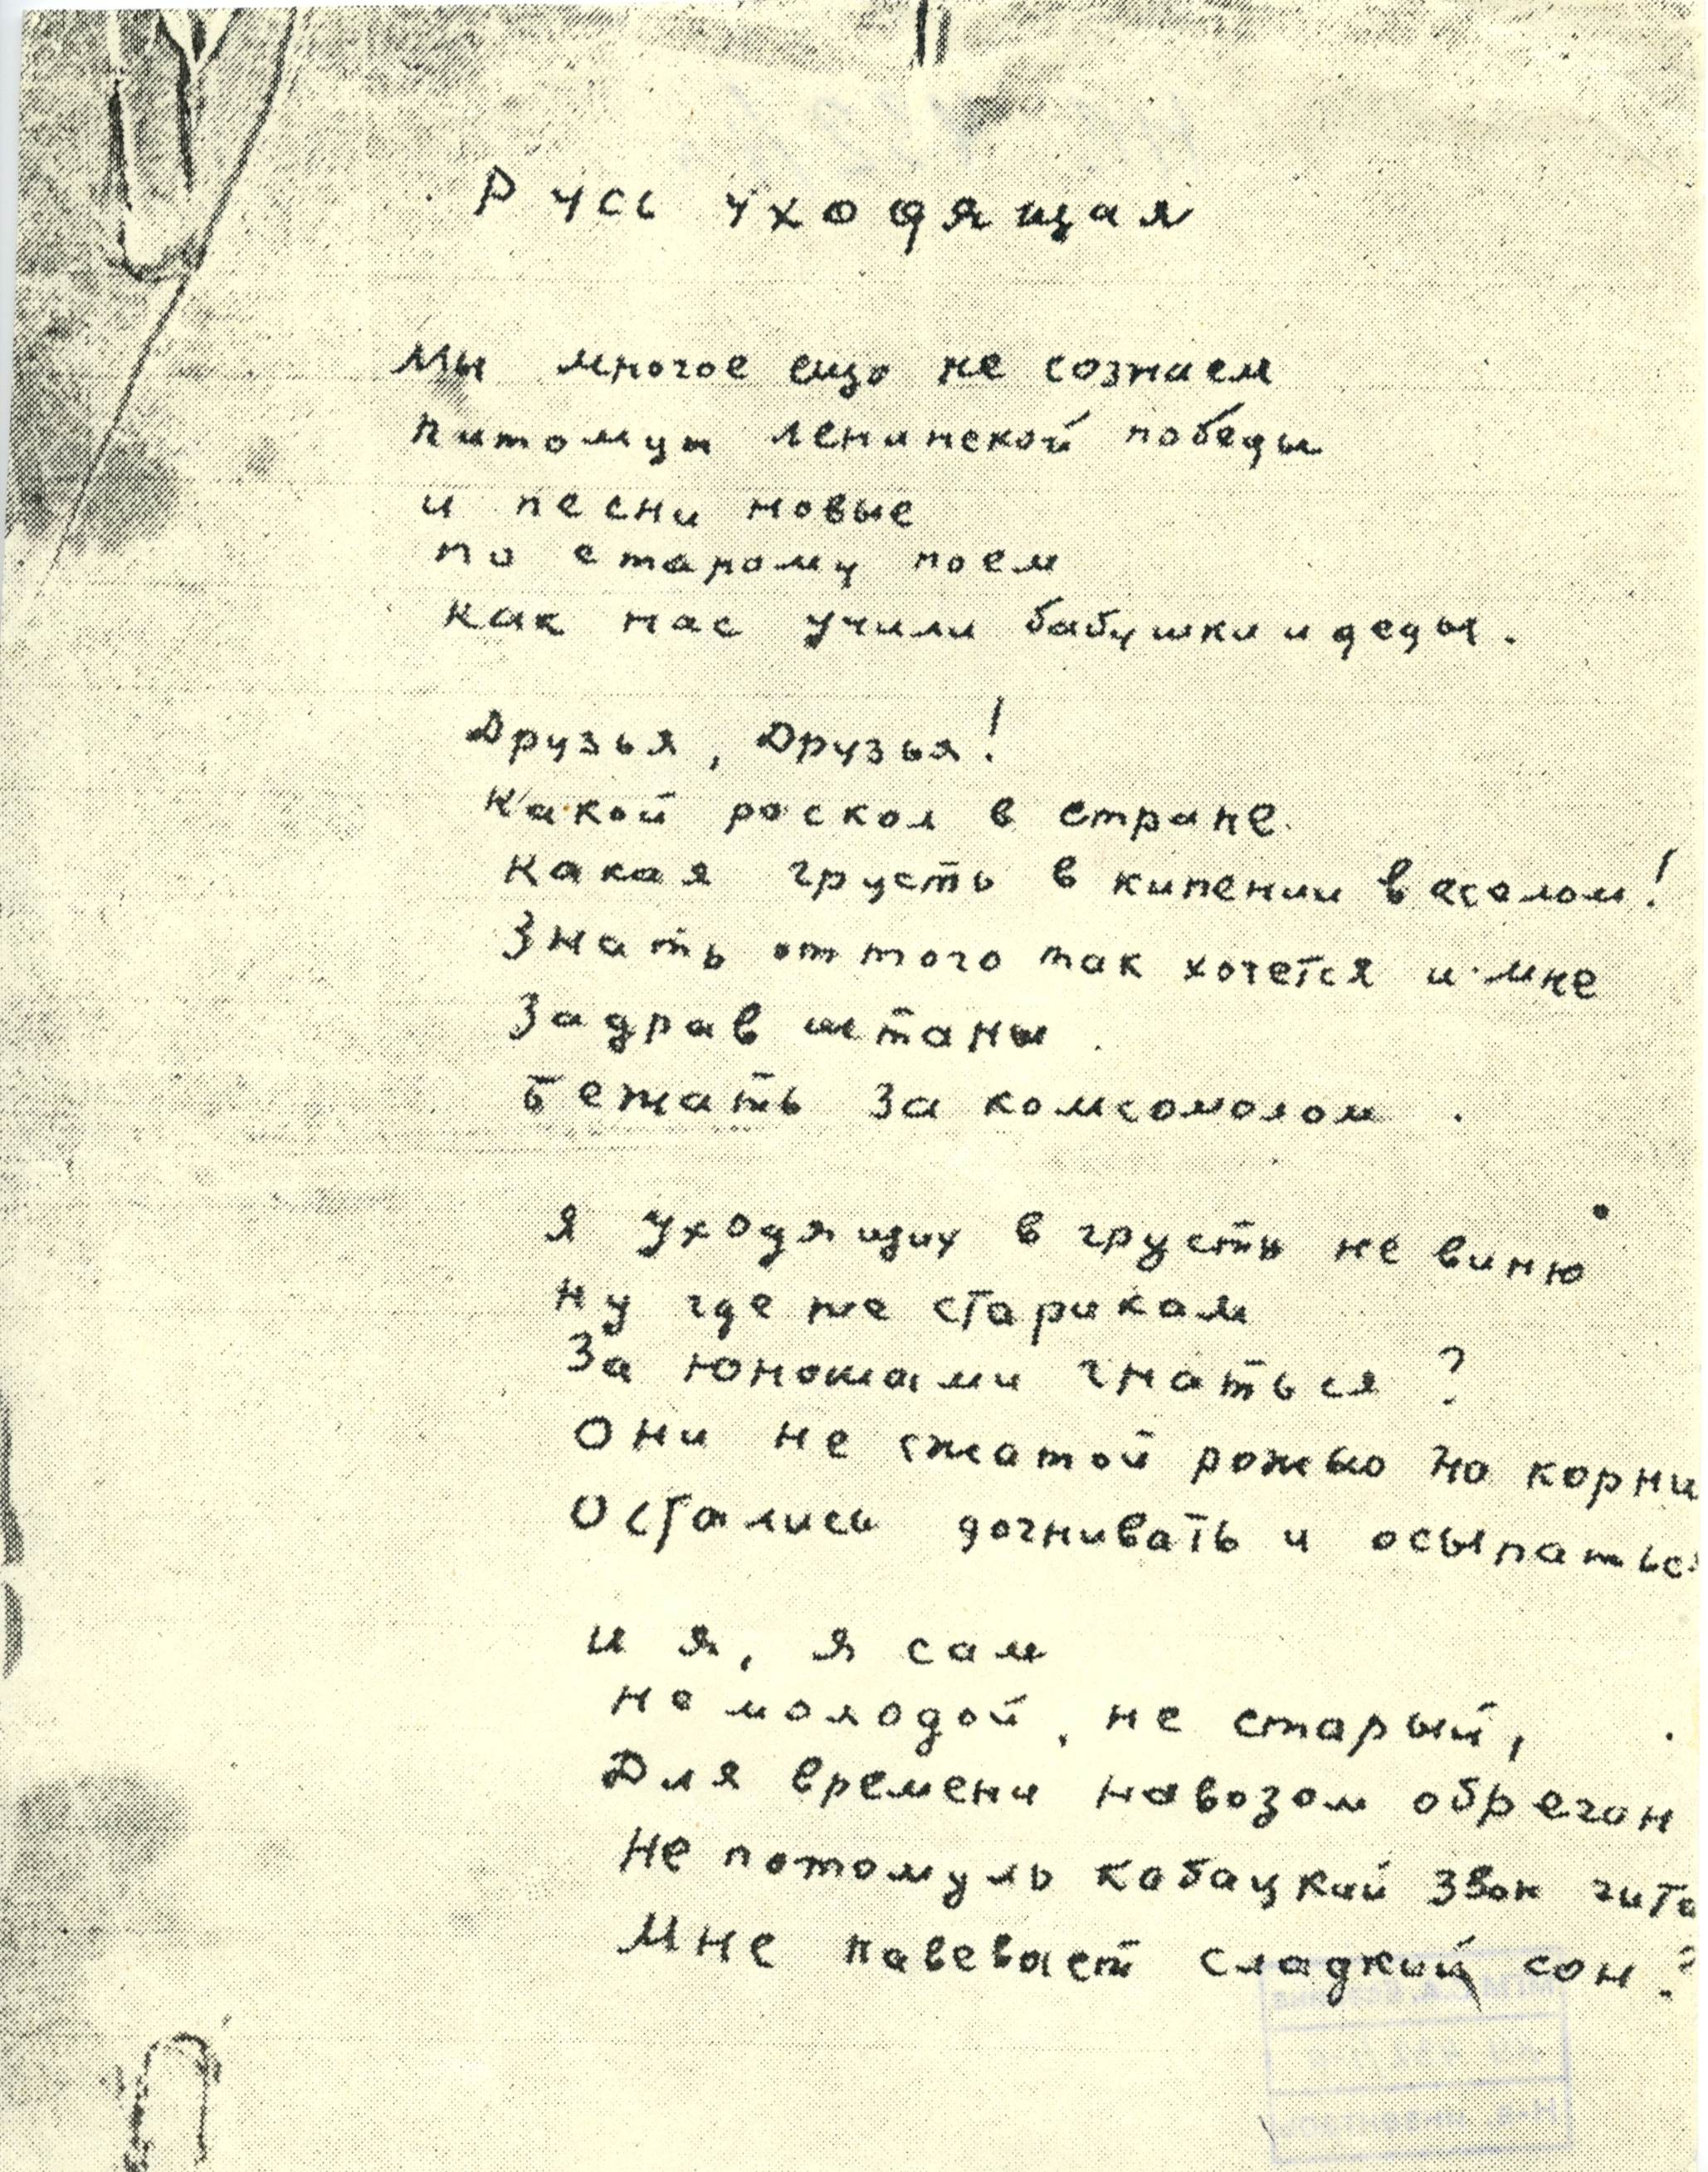 Русь уходящая
Мы многое ещо не сознаем
питомцы ленинской победы
и песни новые
по старому поем
как нас учили бабушки и деды.
Друзья, Друзья!
Какой роскол в стране
Какая грусть в кипении веселом!
Знать оттого так хочется и мне
Задрав штаны
бежать за комсомолом.
Я уходящих в грусти не виню
Ну где же старикам
За юношами гнаться?
Они не сжатой рожью на корню
Остались догнивать и осыпаться
И я, я сам
Не молодой, не старый,
Для времени навозом обречен
Не потомуль кабацкий звон гита
Мне навевает сладкий сон?